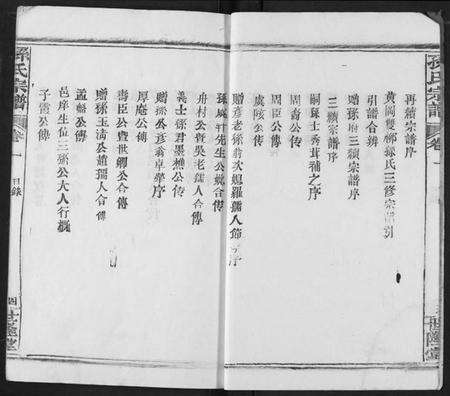 孫氏宗譜 卷一
再續宗譜序
黃岡雙柳孫氏三修宗譜引
引譜合辨
贈孫府三續宗譜序
三續宗譜序
嗣孫士秀茸補之序
周甫公傳
周臣公傳
虞陔公傳
贈彥老孫翁次媳羅孺人節序
孫 先生公 合傳
舟村公暨吳老孺人合傳
義士孫君墨樵公傳
贈孫公彥翁卓舉序
厚庵公傳
壽臣公暨世綱公合傳
贈孫玉清公趙孺人合傳
孟 公傳
邑庠生位三孫公大人行畧
子 公傳
孫氏宗譜 卷一 目錄 四 世 堂